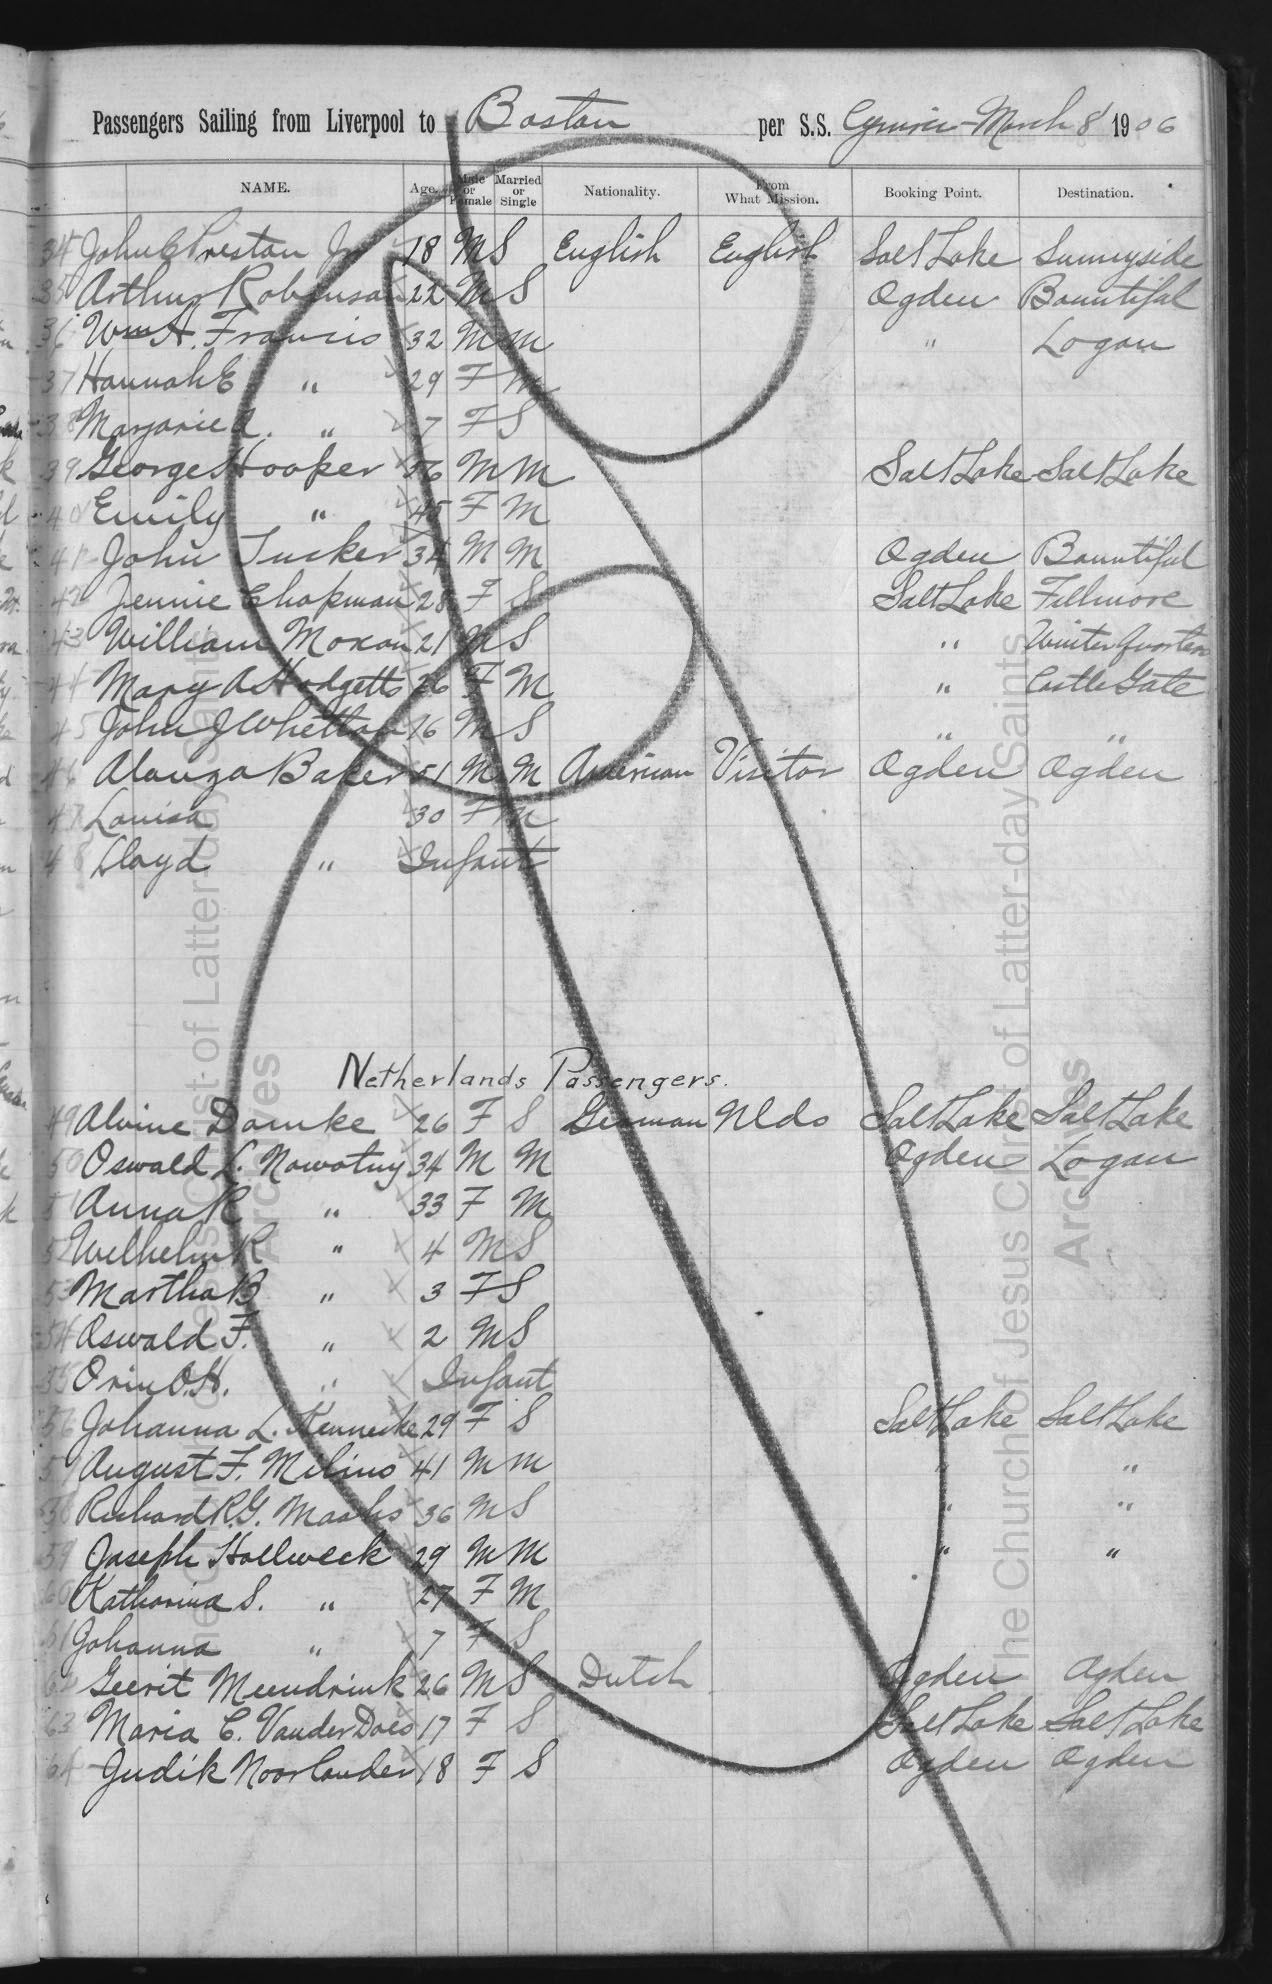 Passengers Sailing from Liverpool to Boston per S.S. Cymric March 8 1906
NAME. Age. Male or Female Married or Single Nationality. From What Mission. Booking Point. Destination.
34 John C Preston Jr 18 M S English English Salt Lake Sunnyside
35 Arthur Robinson 22 M S Ogden Bountiful
36 Wm H. Francis 32 M M " Logan
37 Hannah E " 29 F M
38 Marjorie A. " 7 F S
39 George Hooper 56 M M Salt Lake Salt Lake
40 Emily " 45 F M
41 John Tucker 34 M M Ogden Bountiful
42 Jennie Chapman 28 F S Salt Lake Fillmore
43 William Moxon 21 M S " Winter Quarters
44 Mary A Hodgetts 26 F M " Castle Gate
45 John J Whetton 16 M S " "
46 Alonzo Baker 51 M M American Visitor Ogden Ogden
47 Louisa 30 F M
48 Lloyd " Infant
Netherlands Passengers.
49 Alvine Domke 26 F S German Nlds Salt Lake Salt Lake
50 Oswald L. Nowotny 34 M M Ogden Logan
51 Anna R " 33 F M
52 Welhelm R " 4 M S
53 Martha B " 3 F S
54 Oswald F. " 2 M S
55 Orin O.H. " Infant
56 Johanna L. Kennecke 29 F S Salt Lake Salt Lake
57 August F. Melino 41 M M " "
58 Richard R.G. Maahs 36 M S " "
59 Joseph Hollweck 29 M M " "
60 Katharina S. " 27 F M
61 Johanna " 7 F S
62 Gerrit Meendrink 26 M S Dutch Ogden Ogden
63 Maria C. VanderDoes 17 F S Salt Lake Salt Lake
64 Judik Noorlander 18 F S Ogden Ogden
The Church of Jesus Christ of Latter-day Saints
Archives
The Church of Jesus Christ of Latter-day Saints
Archives